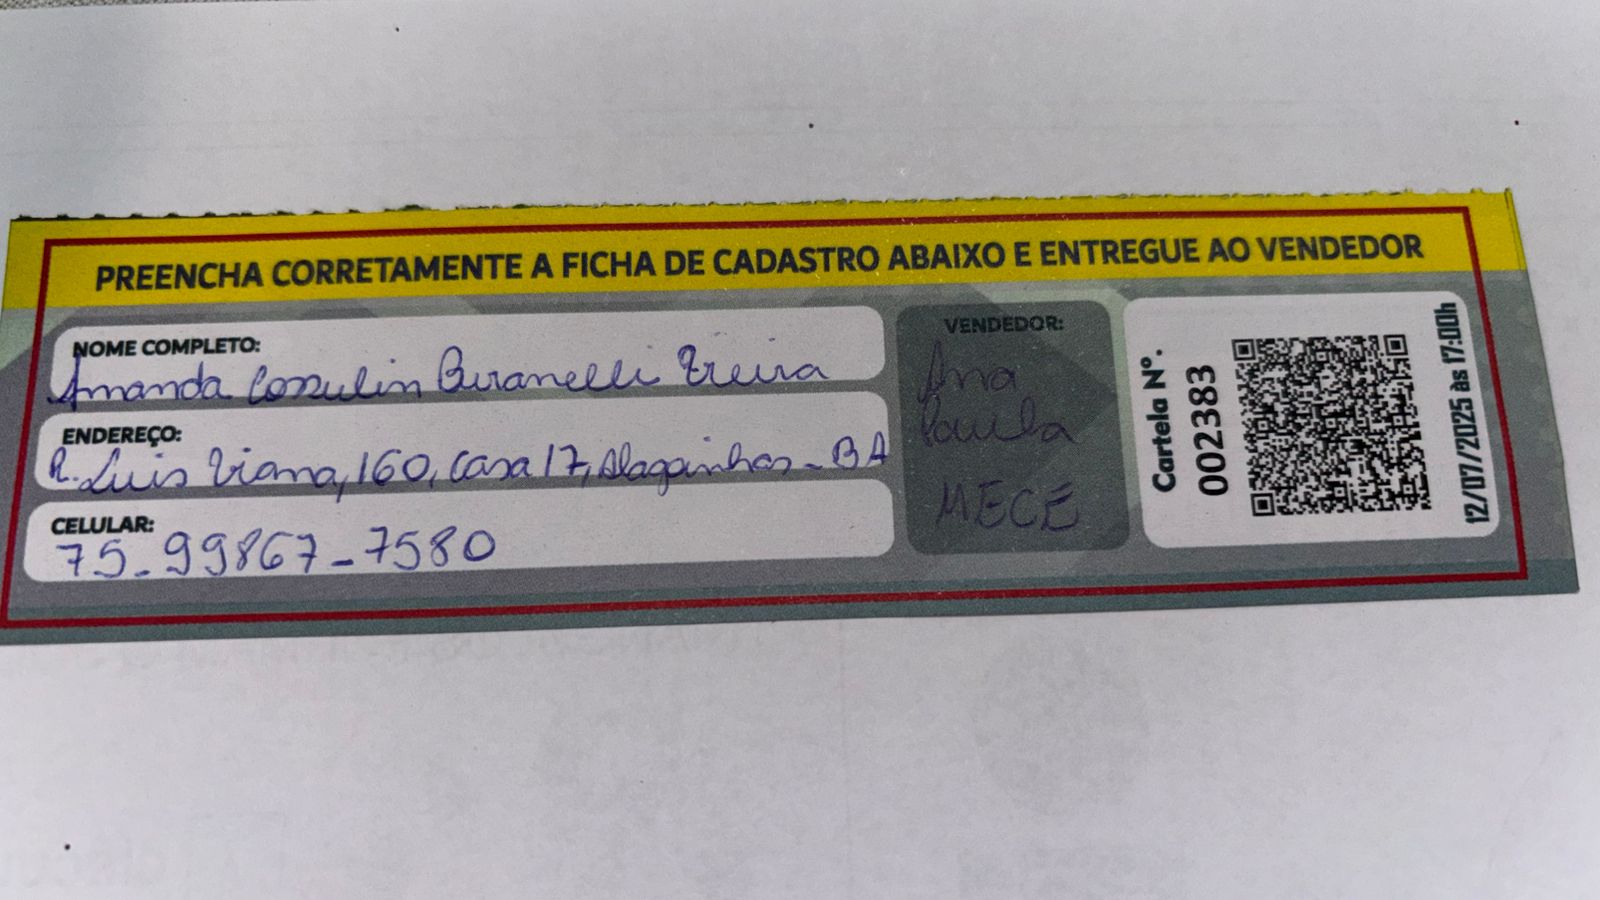 PREENCHA CORRETAMENTE A FICHA DE CADASTRO ABAIXO E ENTREGUE AO VENDEDOR
NOME COMPLETO:
Amanda Cossulin Buranelli Vieira
ENDEREÇO:
R. Luis Viana, 160, Casa 17, Alagoinhas - BA
CELULAR:
75-99867-7580
VENDEDOR:
Ana
Paula
MECE
Cartela Nº.
002383
12/07/2025 às 17:00h